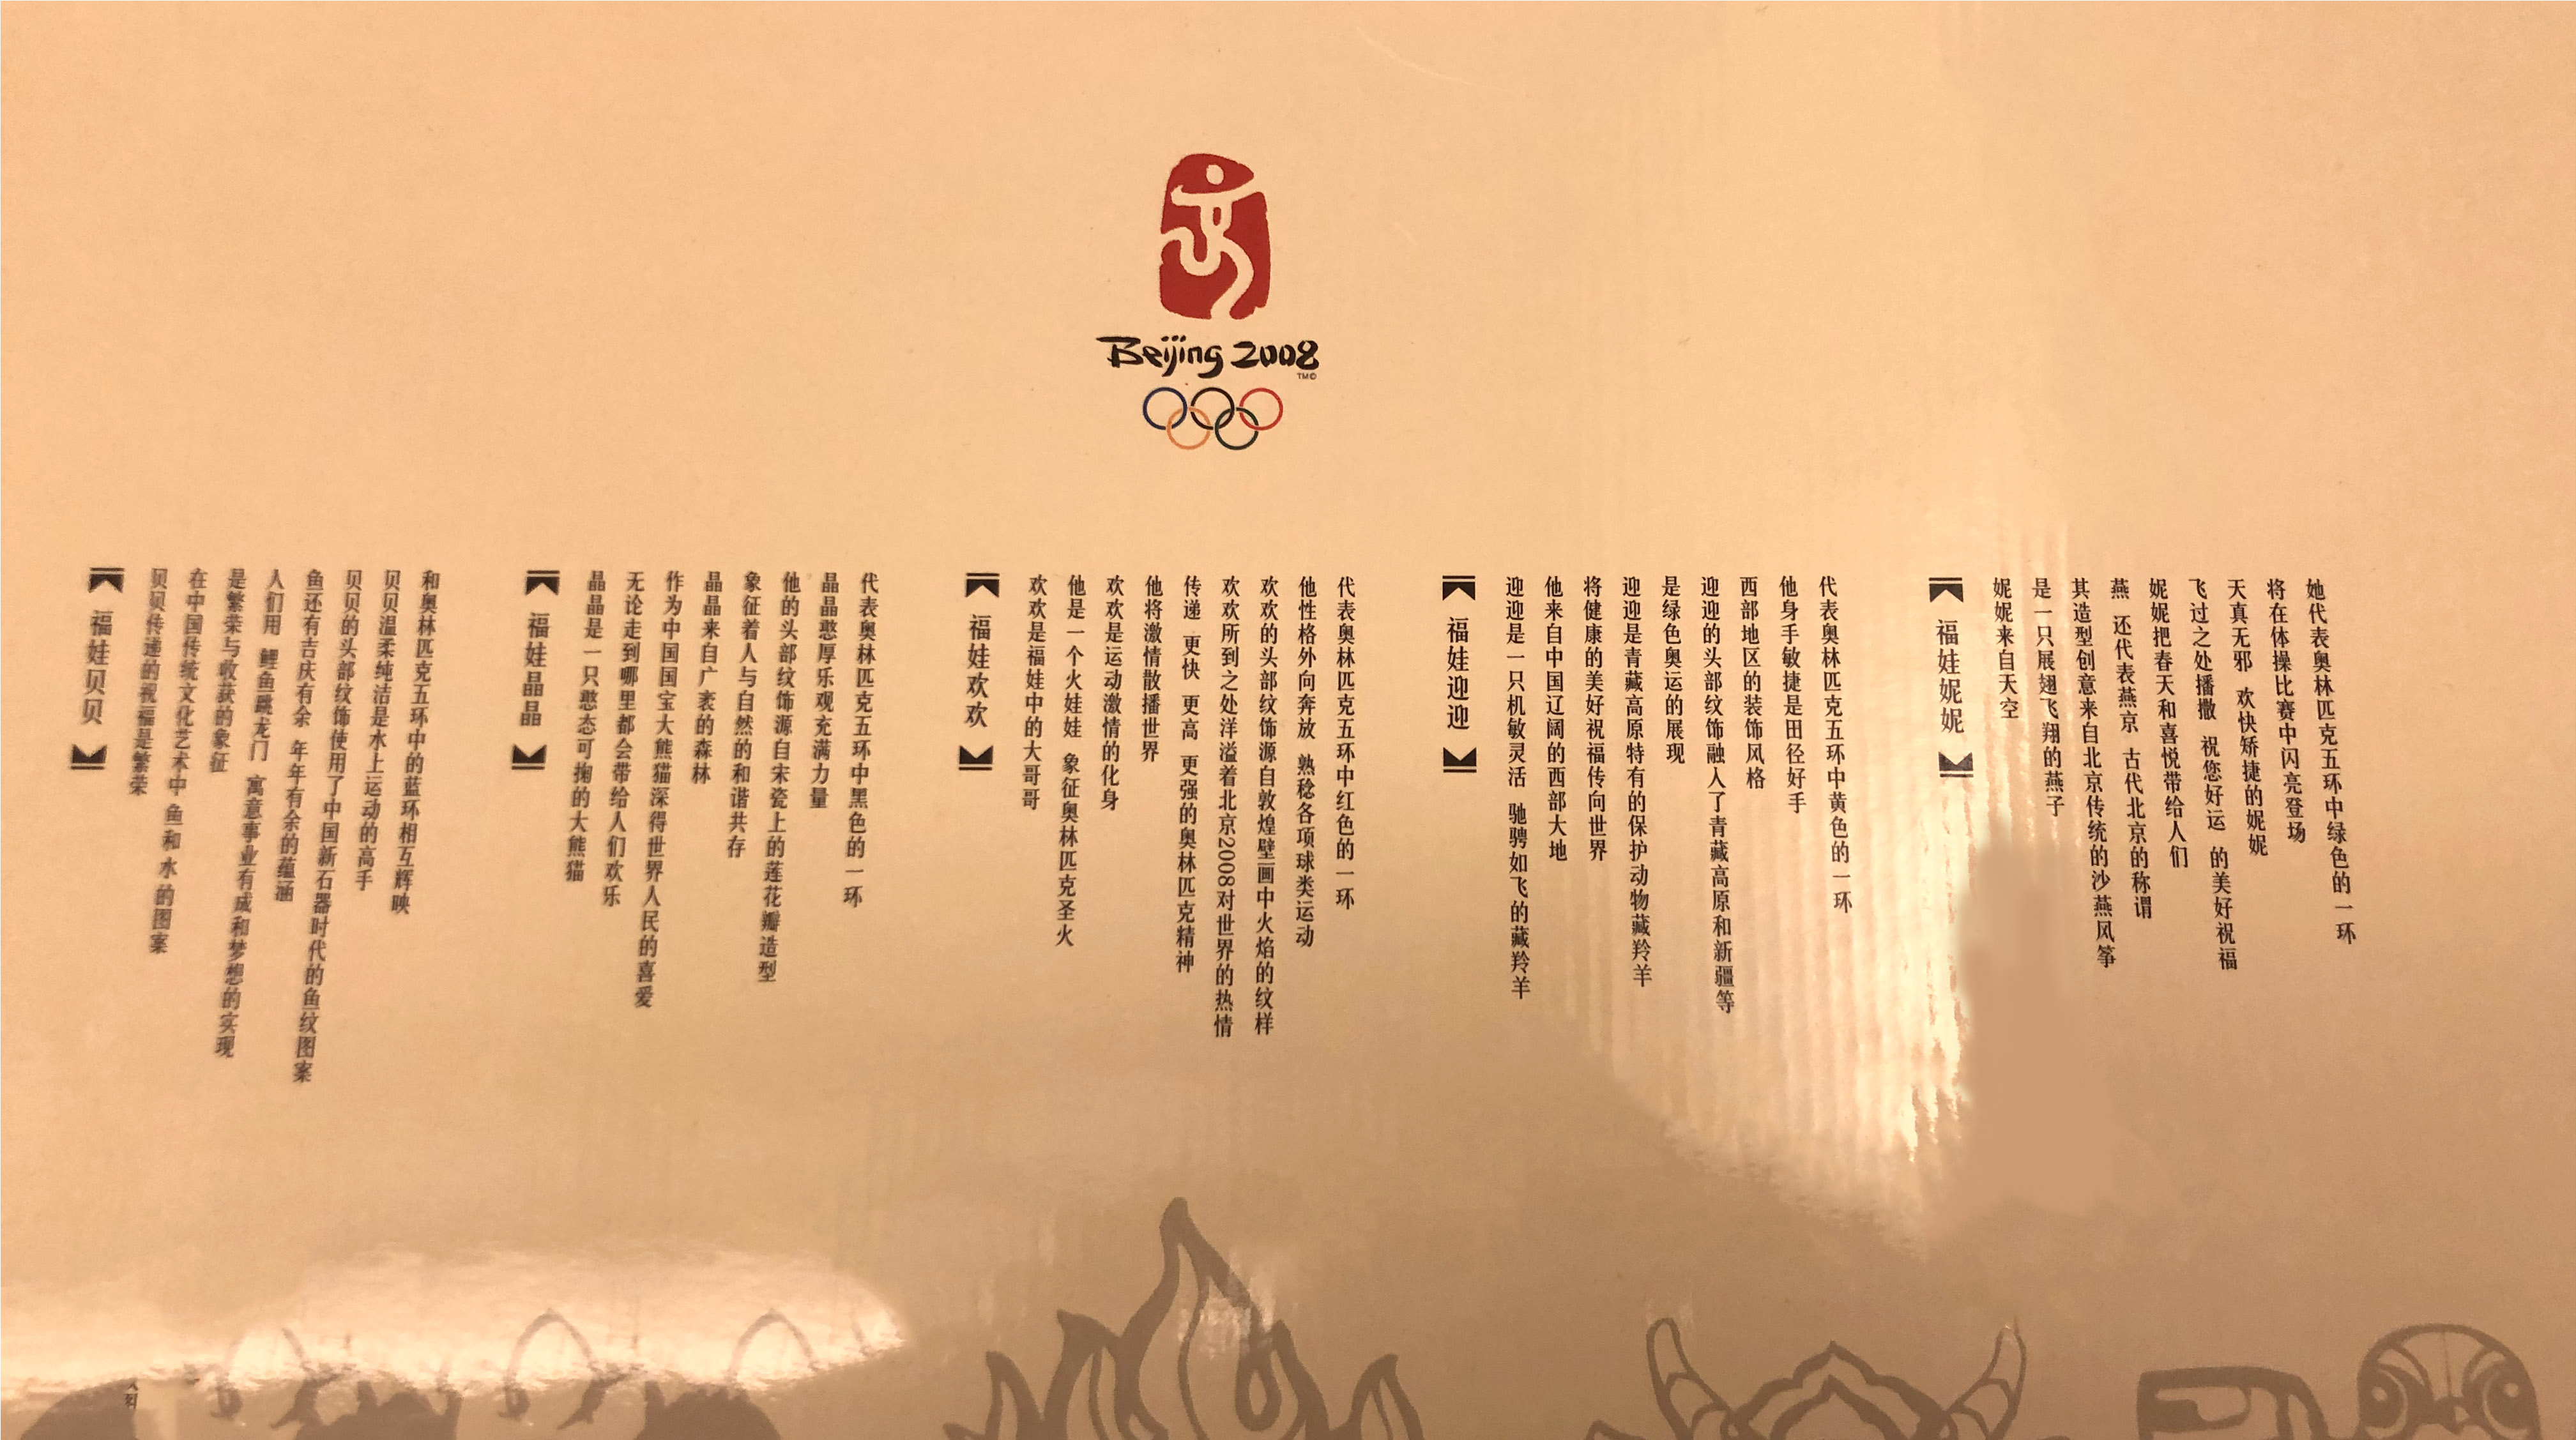 Beijing 2008
TM©
福娃贝贝
贝贝传递的祝福是繁荣
在中国传统文化艺术中 鱼和水的图案
是繁荣与收获的象征
人们用 鲤鱼跳龙门 寓意事业有成和梦想的实现
鱼还有吉庆有余 年年有余的蕴涵
贝贝的头部纹饰使用了中国新石器时代的鱼纹图案
贝贝温柔纯洁是水上运动的高手
和奥林匹克五环中的蓝环相互辉映
福娃晶晶
晶晶是一只憨态可掬的大熊猫
无论走到哪里都会带给人们欢乐
作为中国国宝大熊猫深得世界人民的喜爱
晶晶来自广袤的森林
象征着人与自然的和谐共存
他的头部纹饰源自宋瓷上的莲花瓣造型
晶晶憨厚乐观充满力量
代表奥林匹克五环中黑色的一环
福娃欢欢
欢欢是福娃中的大哥哥
他是一个火娃娃 象征奥林匹克圣火
欢欢是运动激情的化身
他将激情散播世界
传递 更快 更高 更强的奥林匹克精神
欢欢所到之处洋溢着北京2008对世界的热情
欢欢的头部纹饰源自敦煌壁画中火焰的纹样
他性格外向奔放 熟稔各项球类运动
代表奥林匹克五环中红色的一环
福娃迎迎
迎迎是一只机敏灵活 驰骋如飞的藏羚羊
他来自中国辽阔的西部大地
将健康的美好祝福传向世界
迎迎是青藏高原特有的保护动物藏羚羊
是绿色奥运的展现
迎迎的头部纹饰融入了青藏高原和新疆等
西部地区的装饰风格
他身手敏捷是田径好手
代表奥林匹克五环中黄色的一环
福娃妮妮
妮妮来自天空
是一只展翅飞翔的燕子
其造型创意来自北京传统的沙燕风筝
燕 还代表燕京 古代北京的称谓
妮妮把春天和喜悦带给人们
飞过之处播撒 祝您好运 的美好祝福
天真无邪 欢快矫捷的妮妮
将在体操比赛中闪亮登场
她代表奥林匹克五环中绿色的一环